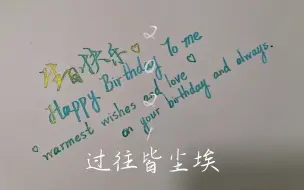 生日快乐
Happy Birthday To me
warmest wishes and love
on your birthday and always.
2
0
2
1
过往皆尘埃